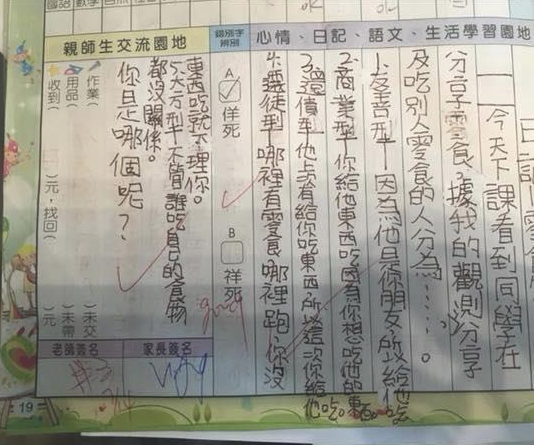 國語
數學
心情、日記、語文、生活學習園地
錯別字辨別
親師生交流園地
今天下課看到同學在
分享零食,據我的觀測分享
及吃別人零食的人分為……。
1.友善型 因為他是你朋友所以給他吃
2.商業型 你給他東西吃因為你想吃他的東西。
3.還債型 他上次有給你吃東西所以這次你給他吃。
4.叛徒型 哪裡有零食哪裡跑,你沒
A ✓ 佯死
B □ 祥死
東西吃就不理你。
5.大方型 不管誰吃自己的食物
都沒關係。
你是哪個呢?
作業( )未交
用品( )未帶
收到( )元,找回( )元
家長簽名
老師簽名
19